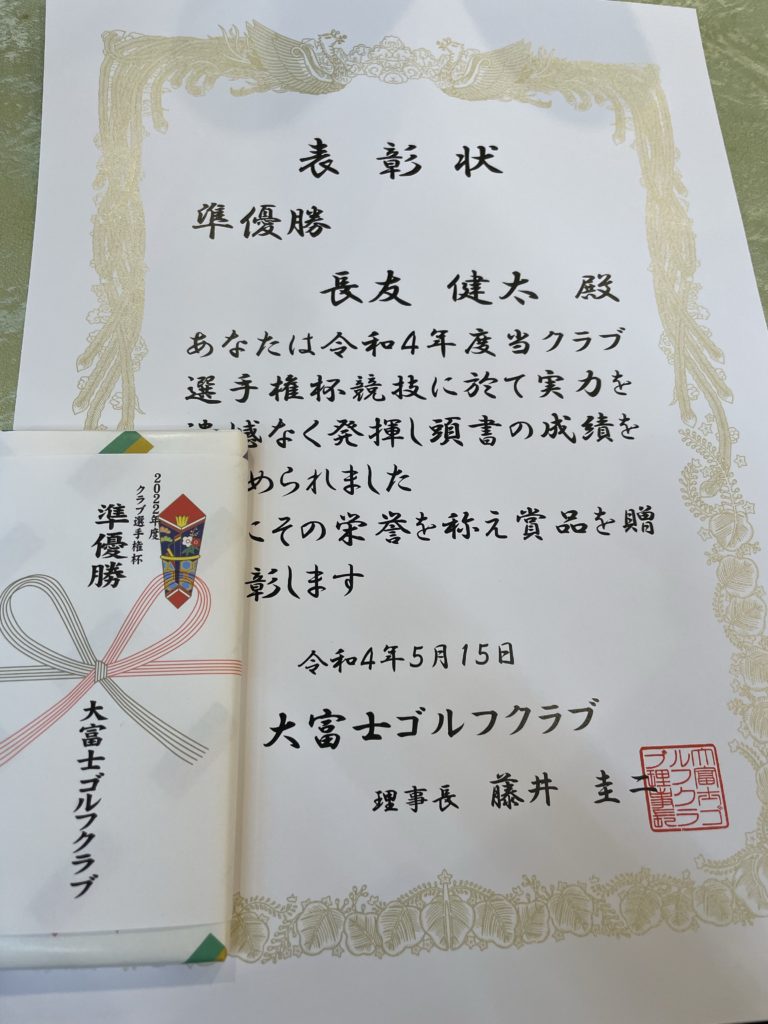 表彰状
準優勝
長友 健太 殿
あなたは令和4年度当クラブ
選手権杯競技に於て実力を
憾なく発揮し頭書の成績を
められました
にその栄誉を称え賞品を贈
彰します
令和4年5月15日
大富士ゴルフクラブ
理事長 藤井 圭二
大富士ゴ
ルフクラ
ブ理事長
2022年度
クラブ選手権杯
準優勝
大富士ゴルフクラブ